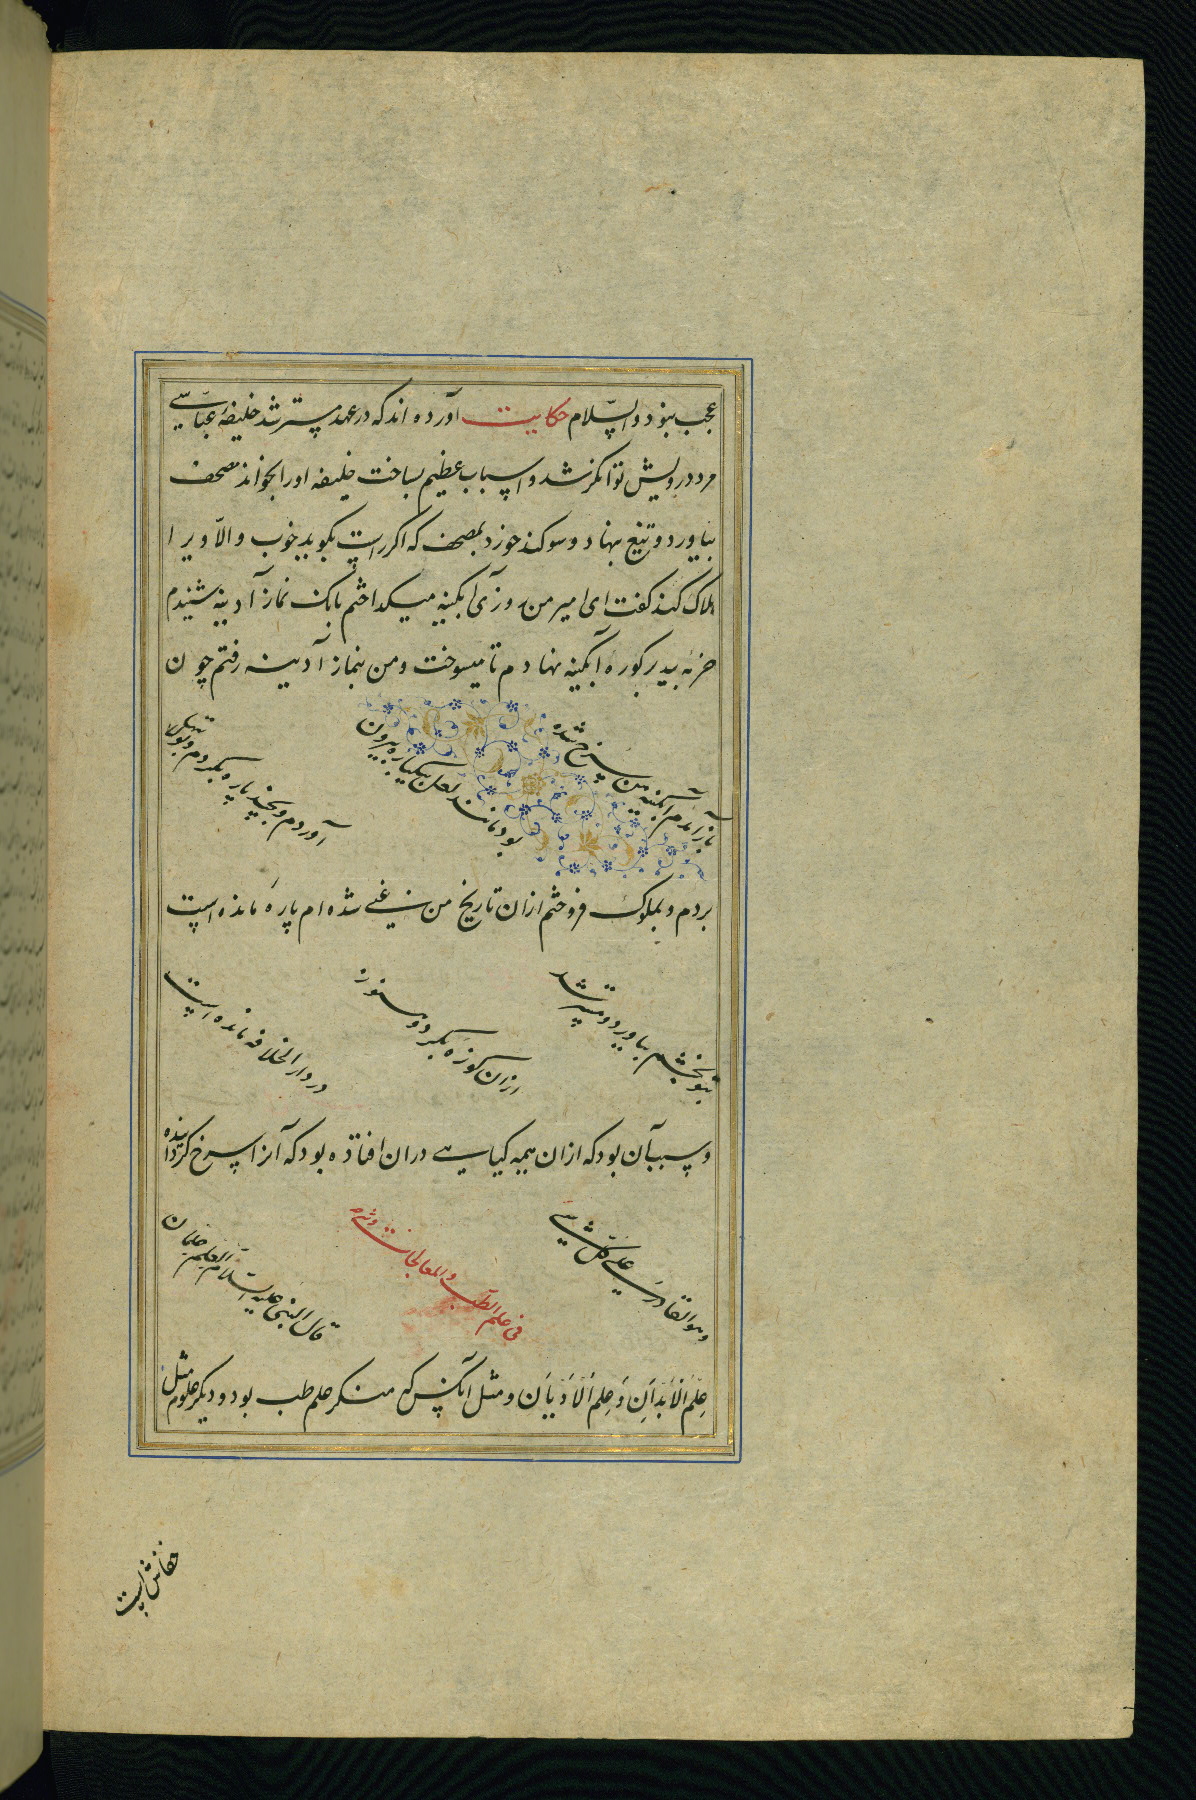 عجب نبود والسّلام حکایت آورده اند که در عهد مسترشد خلیفهٔ عبّاسی
مرد درویش توانکر شد و اسباب عظیم بساخت خلیفه اورا بخواند مصحف
بیاورد و تیغ بنهاد و سوکند خورد بمصحف که اکر راست بکوید خوب و الّا ویرا
هلاک کند کفت ای امیر من روزی آبکینه میکداختم بانک نماز آدینه شنیدم
بدر کوره آبکینه نهادم تا میسوخت و من بنماز آدینه رفتم چون
باز آمدم آبکینه من سرخ شده
بود مانند لعل یکپاره بیرون
آوردم و بچند پاره بکردم و
بردم و بملوک فروختم ازان تاریخ من غنی شده ام پارهٔ مانده است
بتو بخشم بیاورد و مسترشد
ازان کوزه بکرد و هنوز
در دار الخلافه مانده است
و سبب آن بود که ازان هیمه کیاهی دران افتاده بود که آنرا سرخ کردانیده
وهو القادر علی کل شی
فی علم الطب والمعالجات وغیره
قال النبی علیه السّلام العلم علمان
عِلْمُ الْاَبْدَانِ وَ عِلْمُ الْاَدْیَانِ و مثل آنکس که منکر علم طب بود و دیکر علوم مثل
خفاش است